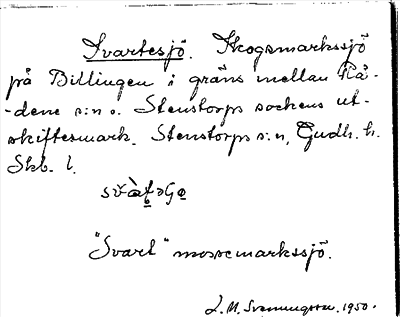 Svartesjö. Skogsmarkssjö
på Billingen i gräns mellan Rå-
-dene s:n o. Stenstorps sockens ut-
skiftesmark. Stenstorps s:n, Gudh. h.
Skb. l.
"Svart" mossemarkssjö.
L. M. Svenungsson. 1950.